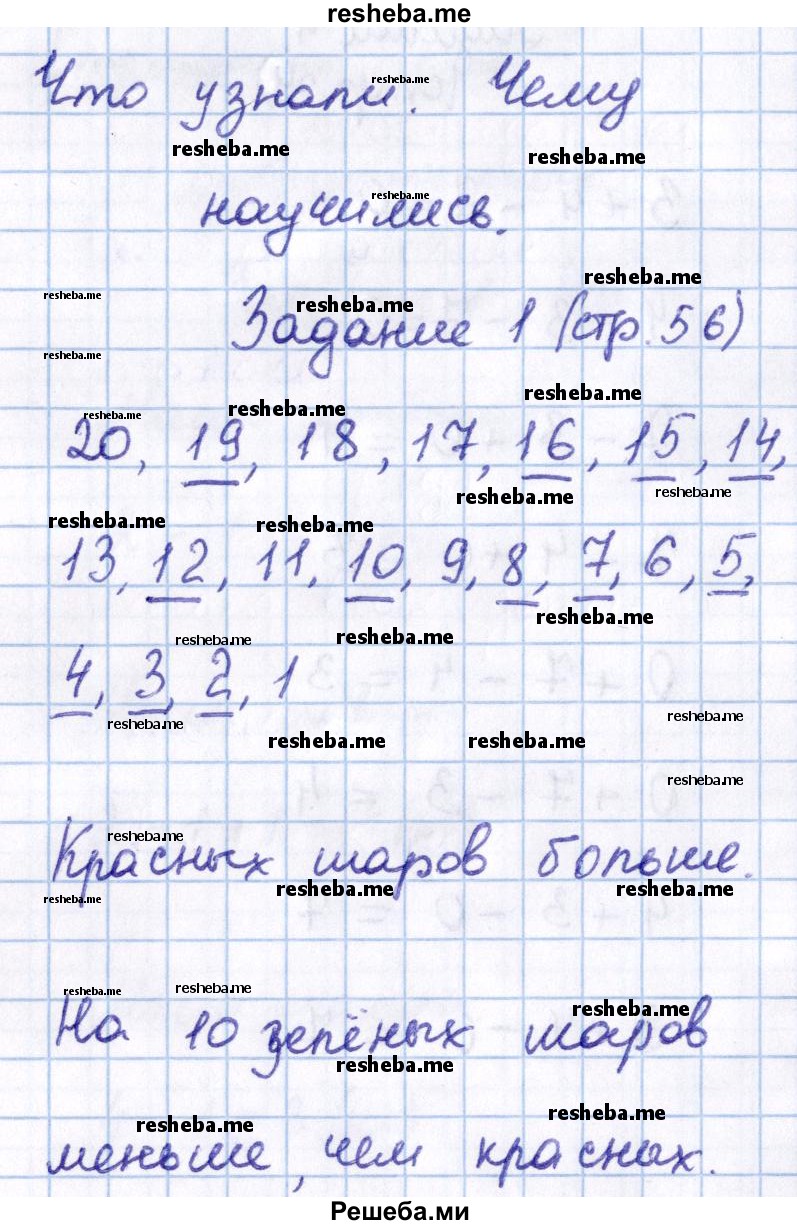 resheba.me
resheba.me
Что узнали. Чему
resheba.me resheba.me
resheba.me
научились.
resheba.me
resheba.me resheba.me
Задание 1 (стр. 56)
resheba.me
resheba.me
resheba.me resheba.me
20, 19, 18, 17, 16, 15, 14,
resheba.me resheba.me
resheba.me resheba.me
13, 12, 11, 10, 9, 8, 7, 6, 5,
resheba.me
resheba.me resheba.me
4, 3, 2, 1
resheba.me resheba.me
resheba.me resheba.me
resheba.me
resheba.me
Красных шаров больше.
resheba.me resheba.me resheba.me
resheba.me resheba.me
resheba.me
На 10 зелёных шаров
resheba.me
resheba.me resheba.me
меньше, чем красных.
Решеба.ми